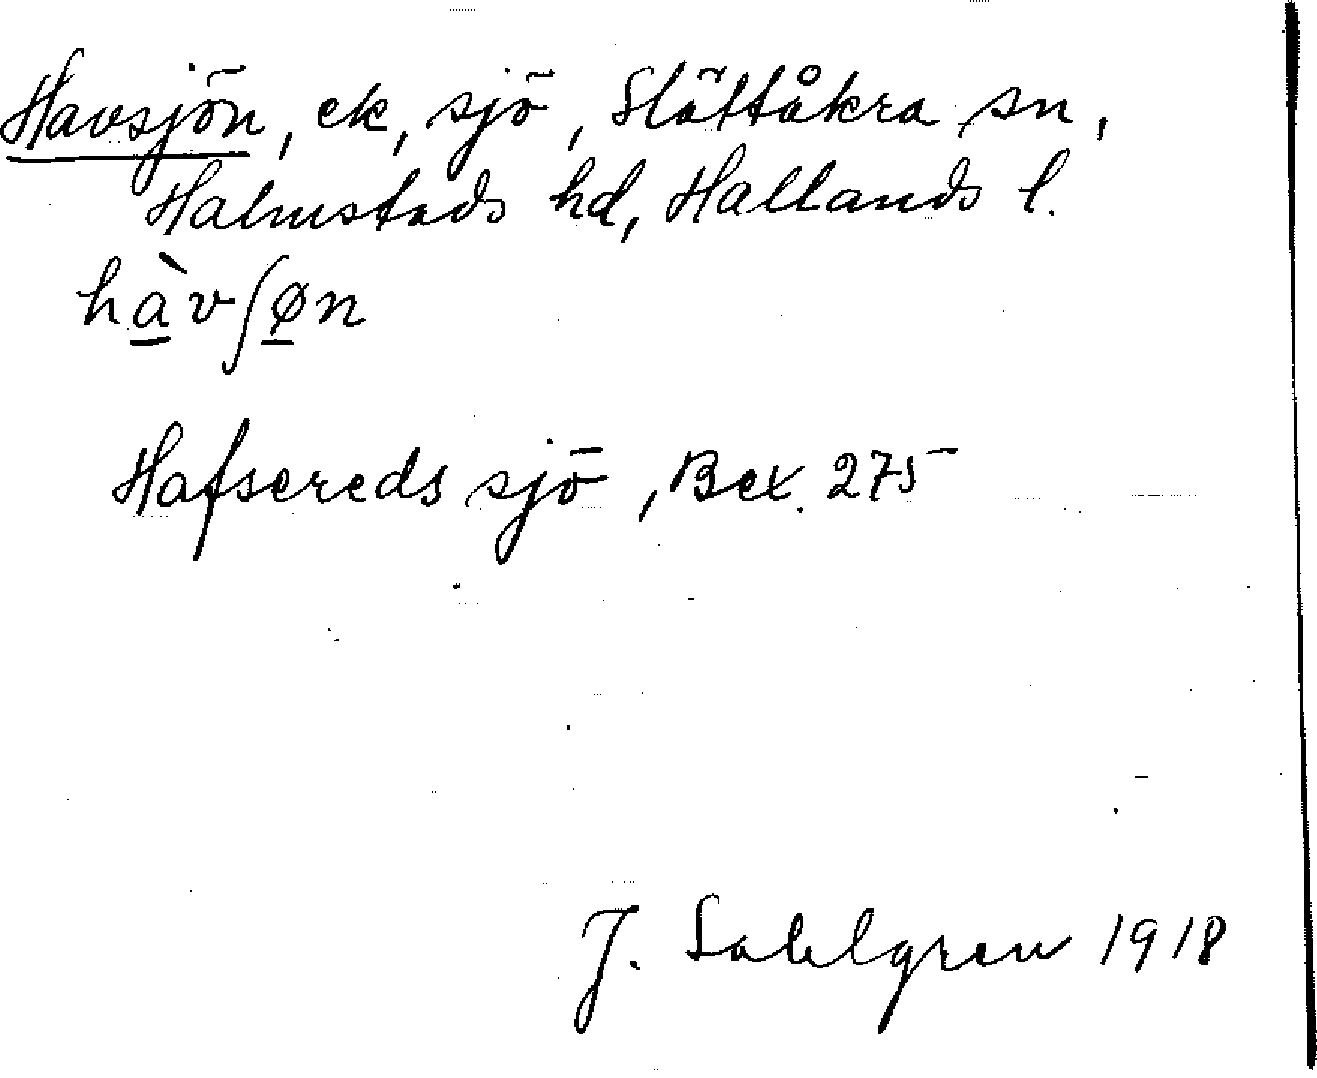 Havsjön, ek, sjö, Slättåkra sn,
Halmstads hd, Hallands l.
hà̱vʃø̱n
Hafsereds sjö, Bex. 275
J. Sahlgren 1918